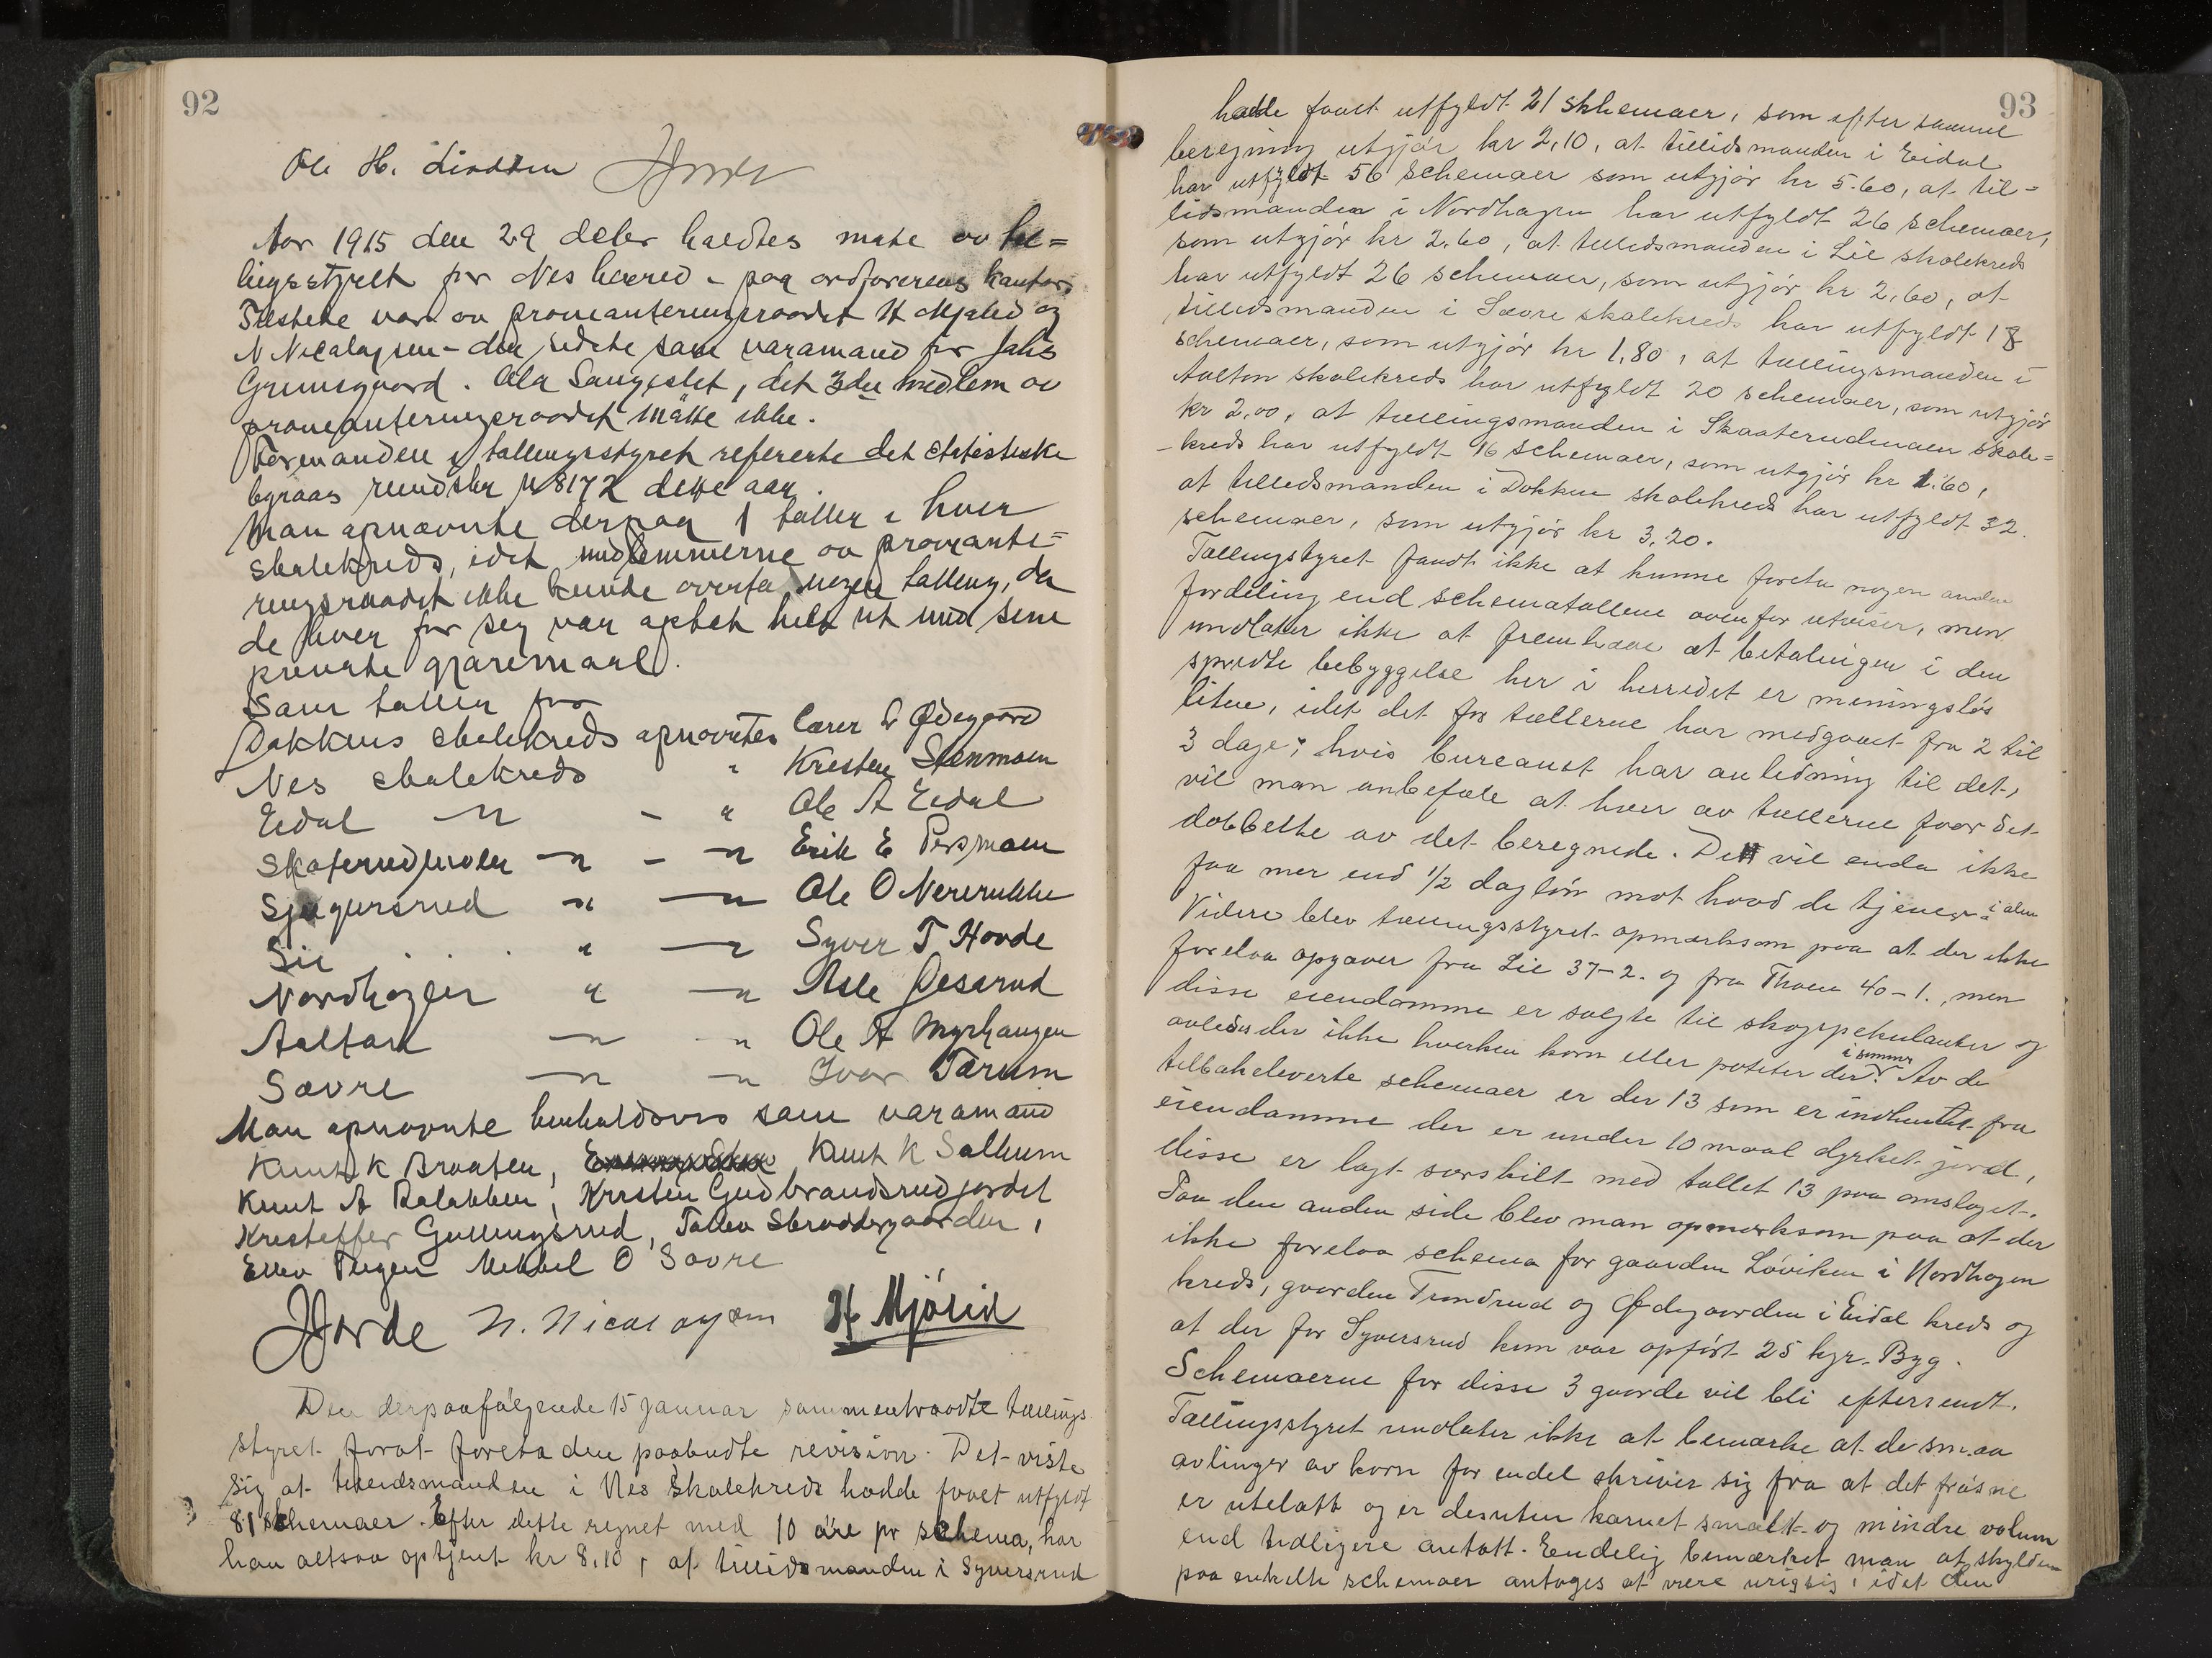 92
Ole H. Lindsten JHorde
Aar 1915 den 29 deler holdtes møte av tæl=
lingsstyret for Nes herred i paa ordførerens kontor.
Tilstede var av provianteringsraadet H Mjølid og
N Nicolaysen - den sidste som varamand for Jahs
Grimsgaard. Ola Sangeslet, det 3die medlem av
provianteringsraadet møtte ikke.
Formanden i tællingsstyret refererte det statistiske
byraas rundskr 8172 dette aar.
Man opnævnte derpaa 1 tæller i hver
skolekreds, idet medlemmerne av proviante=
ringsraadet ikke kunde overta nogen tælling, da
de hver for seg var optat helt ut med sine
private gjøremaal.
Som tæller for
Dokkens skolekreds opnævntes lærer Ødegaard
Nes skolekreds " Kristen Stenmoen
Eidal — " — - " Ole A Eidal
Skaterudmoen — " — - — " Erik E Persmoen
Sjugursrud " — " Ole O Nererukke
Lie . . . " — " Syver T Hovde
Nordhagen " — " Asle Jesrud
Aaltan — " — " Ole A Myrhaugen
Sævre — " — — " Ivar Tørum
Man opnævnte henholdsvis som varamand
Knut K Braaten, Knut K Sallum
Knut A Rolabben, Kristen Gudbrandsrudjordet
Kristoffer Gullingsrud, Tollev Skroddergaarden,
Ellev Teigen Mekkel O Sævre
JHorde N. Nicolaysen H Mjølid
Den derpaafølgende 15 januar sammentraadte tællings
styret forat foreta den paabudte revision. Det viste
sig at tillidsmanden i Nes skolekreds hadde faaet utfyldt
81 schemaer. Efter dette regnet med 10 øre pr schema, har
han altsaa optjent kr 8,10, at tillidsmanden i Syversrud
93
hadde faaet utfyldt 21 skhemaer, som efter samme
beregning utgjør kr 2,10, at tillidsmanden i Eidal
har utfyldt 56 schemaer som utgjør kr 5.60, at til=
lidsmanden i Nordhagen har utfyldt 26 schemaer,
som utgjør kr 2.60, at tillidsmanden i Lie skolekreds
har utfyldt 26 schemaer, som utgjør kr 2,60, at
tillidsmanden i Sævre skolekreds har utfyldt 18
schemaer, som utgjør kr 1,80, at tællingsmanden i
Aalton skolekreds har utfyldt 20 schemaer, som utgjør
kr 2,00, at tællingsmanden i Skaaterudmoen skole=
kreds har utfyldt 16 schemaer, som utgjør kr 1.60,
at tillidsmanden i Dokken skolekreds har utfyldt 32
schemaer, som utgjør kr 3,20.
Tællingstyret fandt ikke at kunne foreta nogen anden
fordeling end schematallene ovenfor utviser, men
undlater ikke at fremhæve at betalingen i den
spredte bebyggelse her i herredet er meningsløs
liten, idet det for tællerne har medgaaet fra 2 til
3 dage; hvis bureauet har anledning til det,
vil man anbefale at hver av tællerne faar det
dobbelte av det beregnede. Det vil enda ikke
faa mer end 1/2 dagløn mot hvad de tjener i alm
Videre blev tællingsstyret opmerksom paa at der ikke
forelaa opgaver fra Lie 37-2. og fra Thoen 40-1., men
disse eiendomme er solgte til skogspekulanter og
avledes der ikke hverken korn eller poteter der i sommer. Av de
tilbakeleverte schemaer er der 13 som er indhentet fra
eiendomme der er under 10 maal dyrket jord,
disse er lagt særskilt med tallet 13 paa omslaget.
Paa den anden side blev man opmerksom paa at der
ikke forelaa schema for gaarden Løviken i Nordhagen
kreds, gaarden Trondrud og Ødegaarden i Eidal kreds og
at der for Syversrud kun var opført 25 kgr. Byg.
Schemaerne for disse 3 gaarde vil bli eftersendt.
Tællingsstyret undlater ikke at bemærke at de smaa
avlinger av korn for endel skriver sig fra at det frøsne
er utelatt og er desuten kornet smaat og mindre volum
end tidligere antatt. Endelig bemærket man at skylden
paa enkelte schemaer antages at være urigtig, idet den